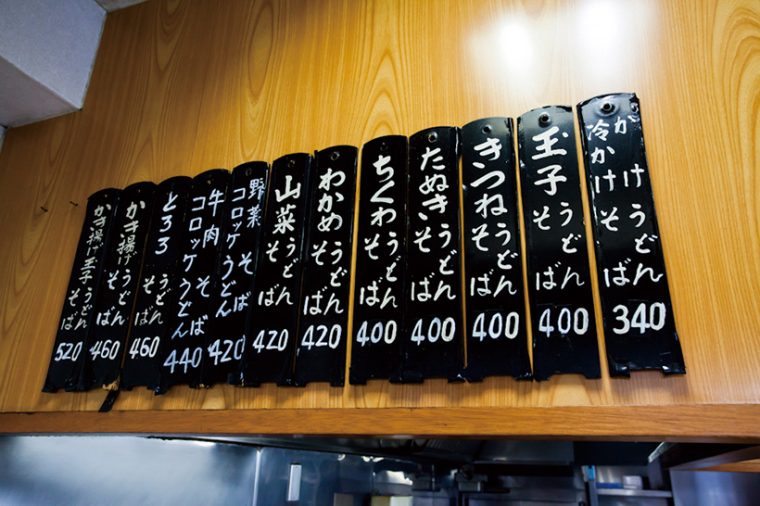 かけうどん
冷かけそば
340
玉子うどん
そば
400
きつねうどん
そば
400
たぬきうどん
そば
400
ちくわうどん
そば
400
わかめうどん
そば
420
山菜うどん
そば
420
野菜そば
コロッケうどん
420
牛肉そば
コロッケうどん
440
とろろうどん
そば
460
かき揚げうどん
そば
460
かき揚げ玉子うどん
そば
520